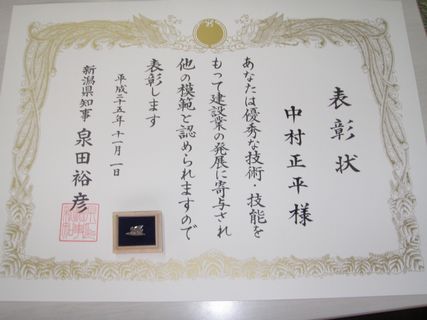 表彰状
中村正平様
あなたは優秀な技術・技能を
もって建設業の発展に寄与され
他の模範と認められますので
表彰します
平成二十五年十一月一日
新潟県知事 泉田裕彦